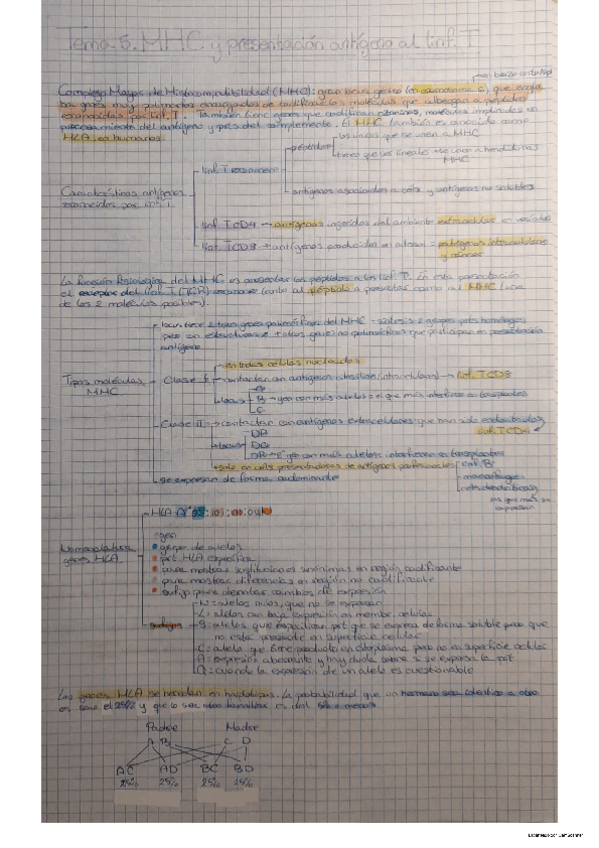 Tema 5. MHC y presentación antígeno al linf. T
brazo corto
Complejo Mayor de Histocompatibilidad (MHC): gran locus génico (en cromosoma 6) que
los genes muy polimórficos encargados de codificar las moléculas que albergan a péptidos
reconocidos por linf. T. También tiene genes que codifican citocinas, moléculas implicadas en
procesamiento del antígeno y prots del complemento. El MHC también es conocido como
HLA en humanos.
péptidos
los únicos que se unen a MHC
tienen que ser lineales se unen a hendiduras
MHC
linf. T reconocen
antígenos asociados a céls y antígenos no solubles
Características antígenos
reconocidos por linf. T.
linf. TCD4 → antígenos ingeridos del ambiente extracelular en vesículas
linf. TCD8 → antígenos producidos en
patógenos intracelulares
y
La función fisiológica del MHC es presentar los péptidos a los linf. T. En esta presentación
el receptor del linf. T (TCR) reconoce tanto al péptido a presentar como al MHC (una
de las 2 moléculas posibles).
locus tiene 2 tipos genes polimórficos del MHC - síntesis 2 grupos prots homólogas
pero con estructura ≠ + otros genes no polimórficos que participan en presentación
antígeno
en todas células nucleadas
Tipos moléculas
MHC
Clase I → contactan con antígenos (intracelulares) → linf. TCD8
locus
A
B → gen con más alelos: el que más interfiere en trasplantes
C
Clase II → contactan con antígenos extracelulares que han sido
linf. TCD4
locus
DP
DQ
DR → gen con más alelos: interfiere en trasplantes
solo en céls presentadoras de antígenos profesionales
linf. B
macrófagos
céls dendríticas
las que más se
expresan
se expresan de forma codominante
HLA A
Nomenclatura
genes HLA
gen
grupo de alelos
prt HLA específica
para mostrar sustituciones sinónimas en región codificante
para mostrar diferencias en región no codificante
sufijo para denotar cambios de expresión
N = alelos nulos, que no se expresan
L = alelos con baja expresión en membr. celular
S = alelos que especifican prt que se expresa de forma soluble pero que
no está presente en superficie celular
C = alelo que tiene producto en citoplasma pero no en superficie celular
A = expresión aberrante y hay duda sobre si se expresa la prt
Q = cuando la expresión de un alelo es cuestionable
Los genes HLA se heredan en haplotipos. La probabilidad que un hermano sea idéntico a otro
es del 25% y que lo sea otro
Padre Madre
A B C D
AC AD BC BD
25% 25% 25% 25%